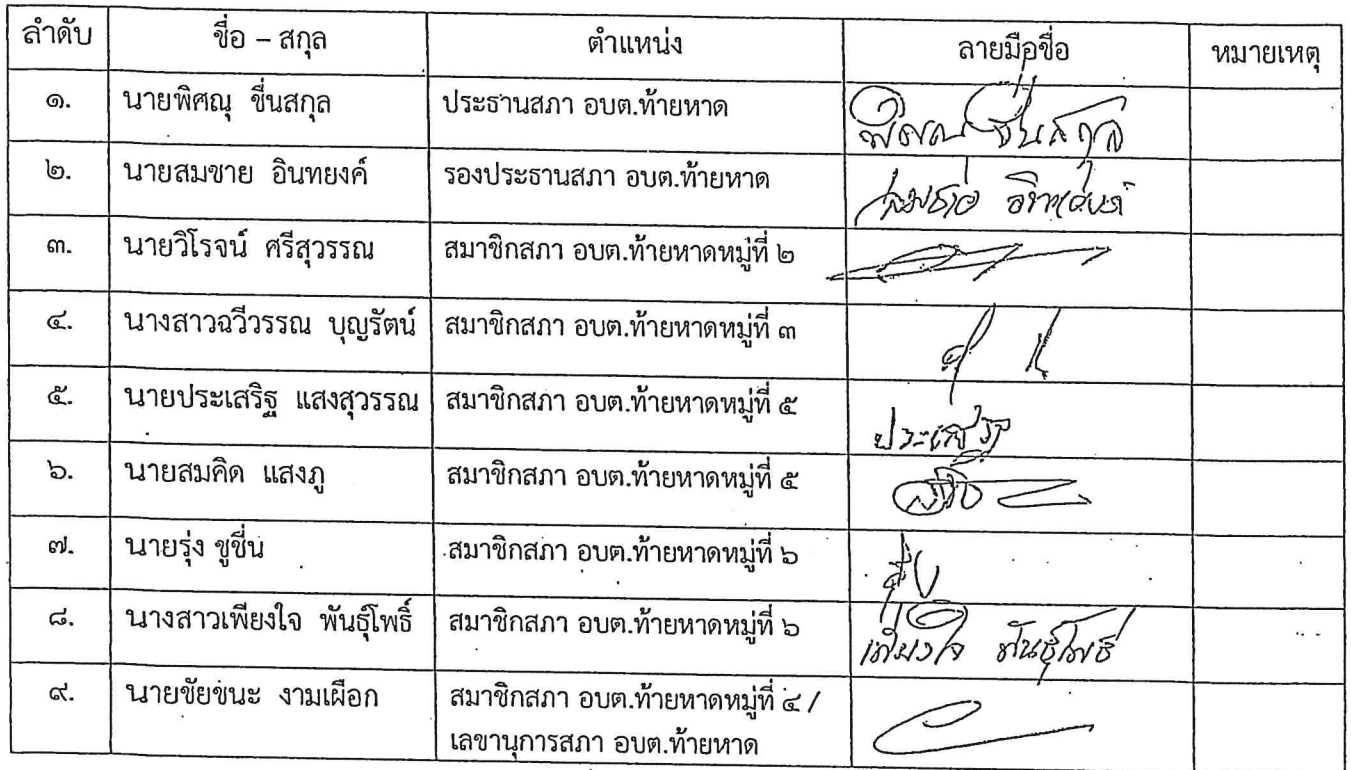 ลำดับ ชื่อ – สกุล ตำแหน่ง ลายมือชื่อ หมายเหตุ
๑. นายพิศณุ ชื่นสกุล ประธานสภา อบต.ท้ายหาด พิศณุ ชื่นสกุล
๒. นายสมชาย อินทยงค์ รองประธานสภา อบต.ท้ายหาด สมชาย อินทยงค์
๓. นายวิโรจน์ ศรีสุวรรณ สมาชิกสภา อบต.ท้ายหาดหมู่ที่ ๒
๔. นางสาวฉวีวรรณ บุญรัตน์ สมาชิกสภา อบต.ท้ายหาดหมู่ที่ ๓
๕. นายประเสริฐ แสงสุวรรณ สมาชิกสภา อบต.ท้ายหาดหมู่ที่ ๕ ประเสริฐ
๖. นายสมคิด แสงภู สมาชิกสภา อบต.ท้ายหาดหมู่ที่ ๕
๗. นายรุ่ง ชูชื่น สมาชิกสภา อบต.ท้ายหาดหมู่ที่ ๖
๘. นางสาวเพียงใจ พันธุ์โพธิ์ สมาชิกสภา อบต.ท้ายหาดหมู่ที่ ๖ เพียงใจ พันธุ์โพธิ์
๙. นายชัยชนะ งามเผือก สมาชิกสภา อบต.ท้ายหาดหมู่ที่ ๔ /
เลขานุการสภา อบต.ท้ายหาด